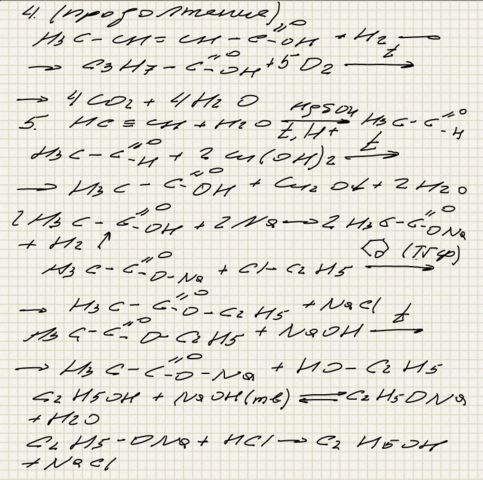 4. (продолжение)
H3C - CH = CH - C=O -OH + H2 →
→ C3H7 - C=O -OH + 5 O2 t →
→ 4CO2 + 4H2O
5. HC ≡ CH + H2O HgSO4 t, H+ → H3C - C=O -H
H3C - C=O -H + 2 Cu(OH)2 t →
→ H3C - C=O -OH + Cu2O↓ + 2H2O
2H3C - C=O -OH + 2Na → 2H3C - C=O -ONa
+ H2 ↑
H3C - C=O -O-Na + Cl - C2H5 (ТГФ) →
→ H3C - C=O -O-C2H5 + NaCl
H3C - C=O -O-C2H5 + NaOH t →
→ H3C - C=O -O-Na + HO - C2H5
C2H5OH + NaOH(тв) ⇌ C2H5ONa
+ H2O
C2H5-ONa + HCl → C2H5OH
+ NaCl